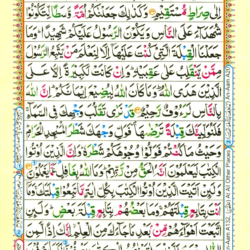 إِلَىٰ صِرَاطٍ مُّسْتَقِيمٍ وَكَذٰلِكَ جَعَلْنٰكُمْ أُمَّةً وَّسَطًا لِّتَكُونُوا
شُهَدَآءَ عَلَى النَّاسِ وَيَكُونَ الرَّسُولُ عَلَيْكُمْ شَهِيدًا وَمَا
جَعَلْنَا الْقِبْلَةَ الَّتِي كُنْتَ عَلَيْهَآ إِلَّا لِنَعْلَمَ مَنْ يَّتَّبِعُ الرَّسُولَ
مِمَّنْ يَّنْقَلِبُ عَلٰى عَقِبَيْهِ وَإِنْ كَانَتْ لَكَبِيرَةً إِلَّا عَلَى
الَّذِينَ هَدَى اللّٰهُ وَمَا كَانَ اللّٰهُ لِيُضِيعَ إِيمَانَكُمْ إِنَّ اللّٰهَ
بِالنَّاسِ لَرَءُوفٌ رَّحِيمٌ قَدْ نَرٰى تَقَلُّبَ وَجْهِكَ فِي السَّمَآءِ
فَلَنُوَلِّيَنَّكَ قِبْلَةً تَرْضٰىهَا فَوَلِّ وَجْهَكَ شَطْرَ الْمَسْجِدِ الْحَرَامِ
وَحَيْثُ مَا كُنْتُمْ فَوَلُّوا وُجُوهَكُمْ شَطْرَهُ وَإِنَّ الَّذِينَ أُوتُوا
الْكِتٰبَ لَيَعْلَمُونَ أَنَّهُ الْحَقُّ مِنْ رَّبِّهِمْ وَمَا اللّٰهُ بِغَافِلٍ عَمَّا يَعْمَلُونَ
وَلَئِنْ أَتَيْتَ الَّذِينَ أُوتُوا الْكِتٰبَ بِكُلِّ اٰيَةٍ مَّا تَبِعُوا قِبْلَتَكَ وَمَآ
أَنْتَ بِتَابِعٍ قِبْلَتَهُمْ وَمَا بَعْضُهُمْ بِتَابِعٍ قِبْلَةَ بَعْضٍ وَلَئِنِ
اتَّبَعْتَ أَهْوَآءَهُمْ مِّنْ بَعْدِ مَا جَآءَكَ مِنَ الْعِلْمِ إِنَّكَ